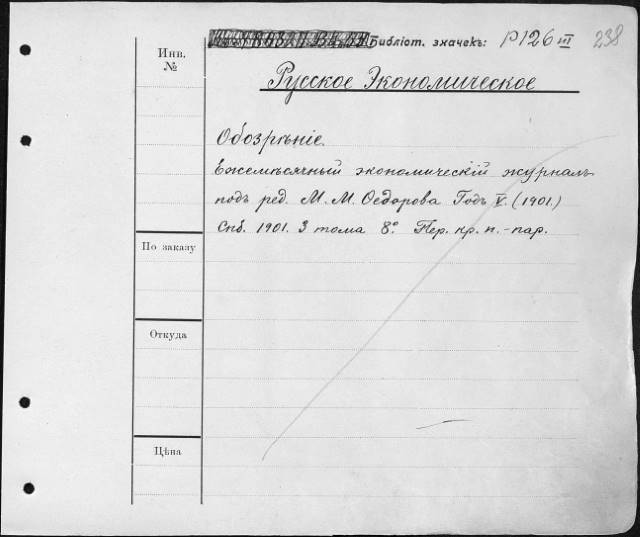 Инв.
№
Библіот. значекъ: P126 III 238
Русское Экономическое
Обозрѣніе.
Ежемѣсячный экономическій журналъ
подъ ред. М. М. Ѳедорова Годъ V. (1901.)
Спб. 1901. 3 тома 8° Пер. кр. п.-пар.
По заказу
Откуда
Цѣна